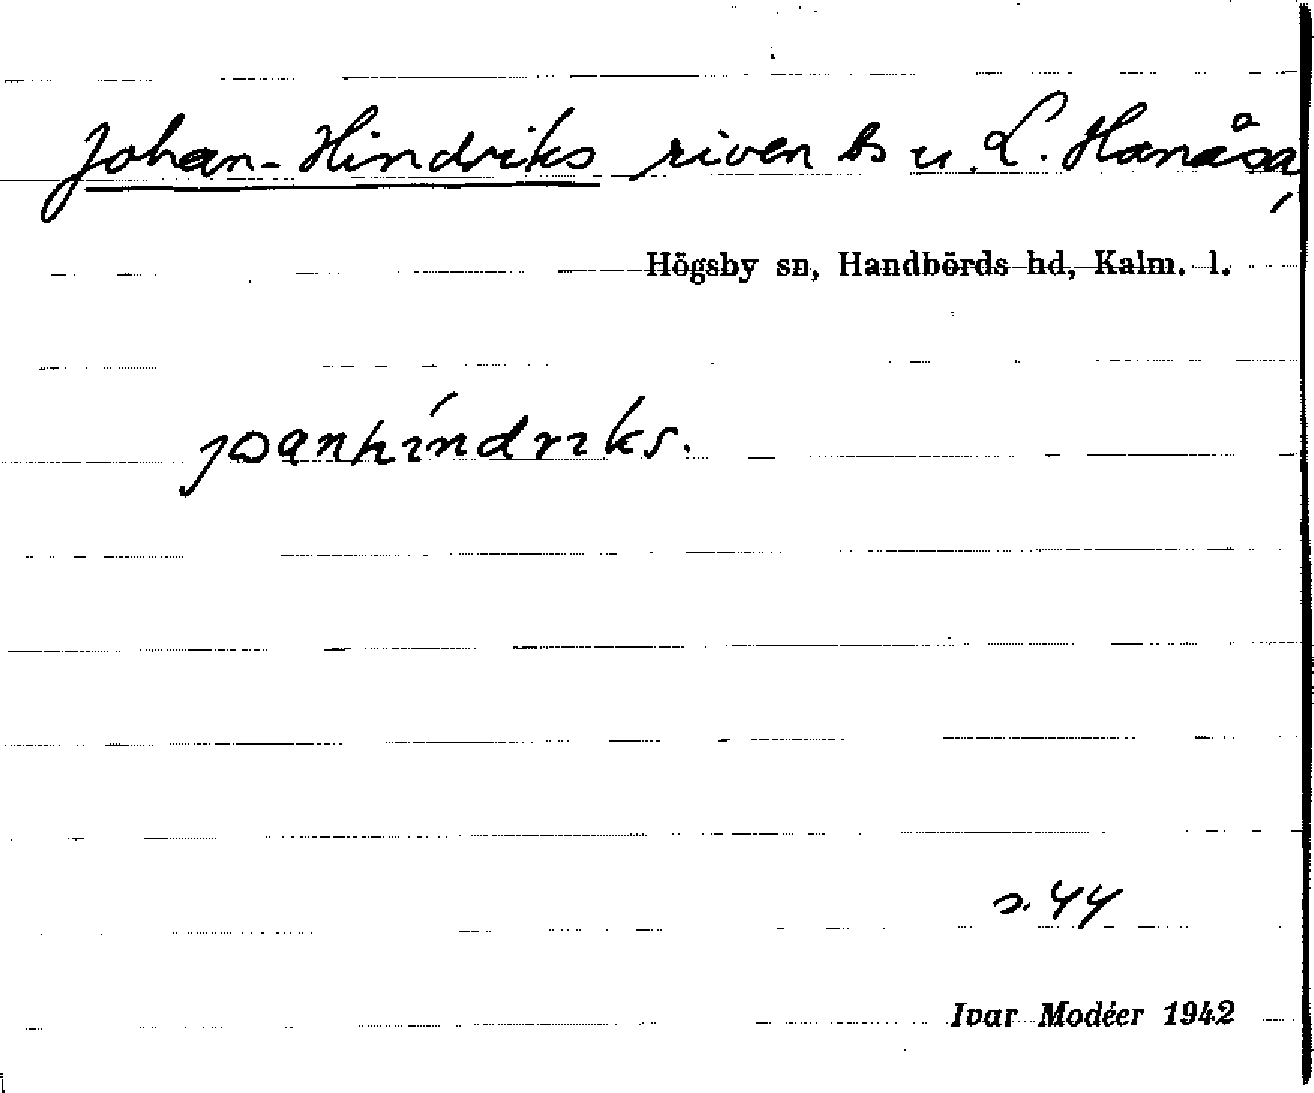 Johan-Hindriks riven bs u. L. Hanåsa,
Högsby sn, Handbörds hd, Kalm. l.
joanhíndrıks.
s. 44
Ivar Modéer 1942